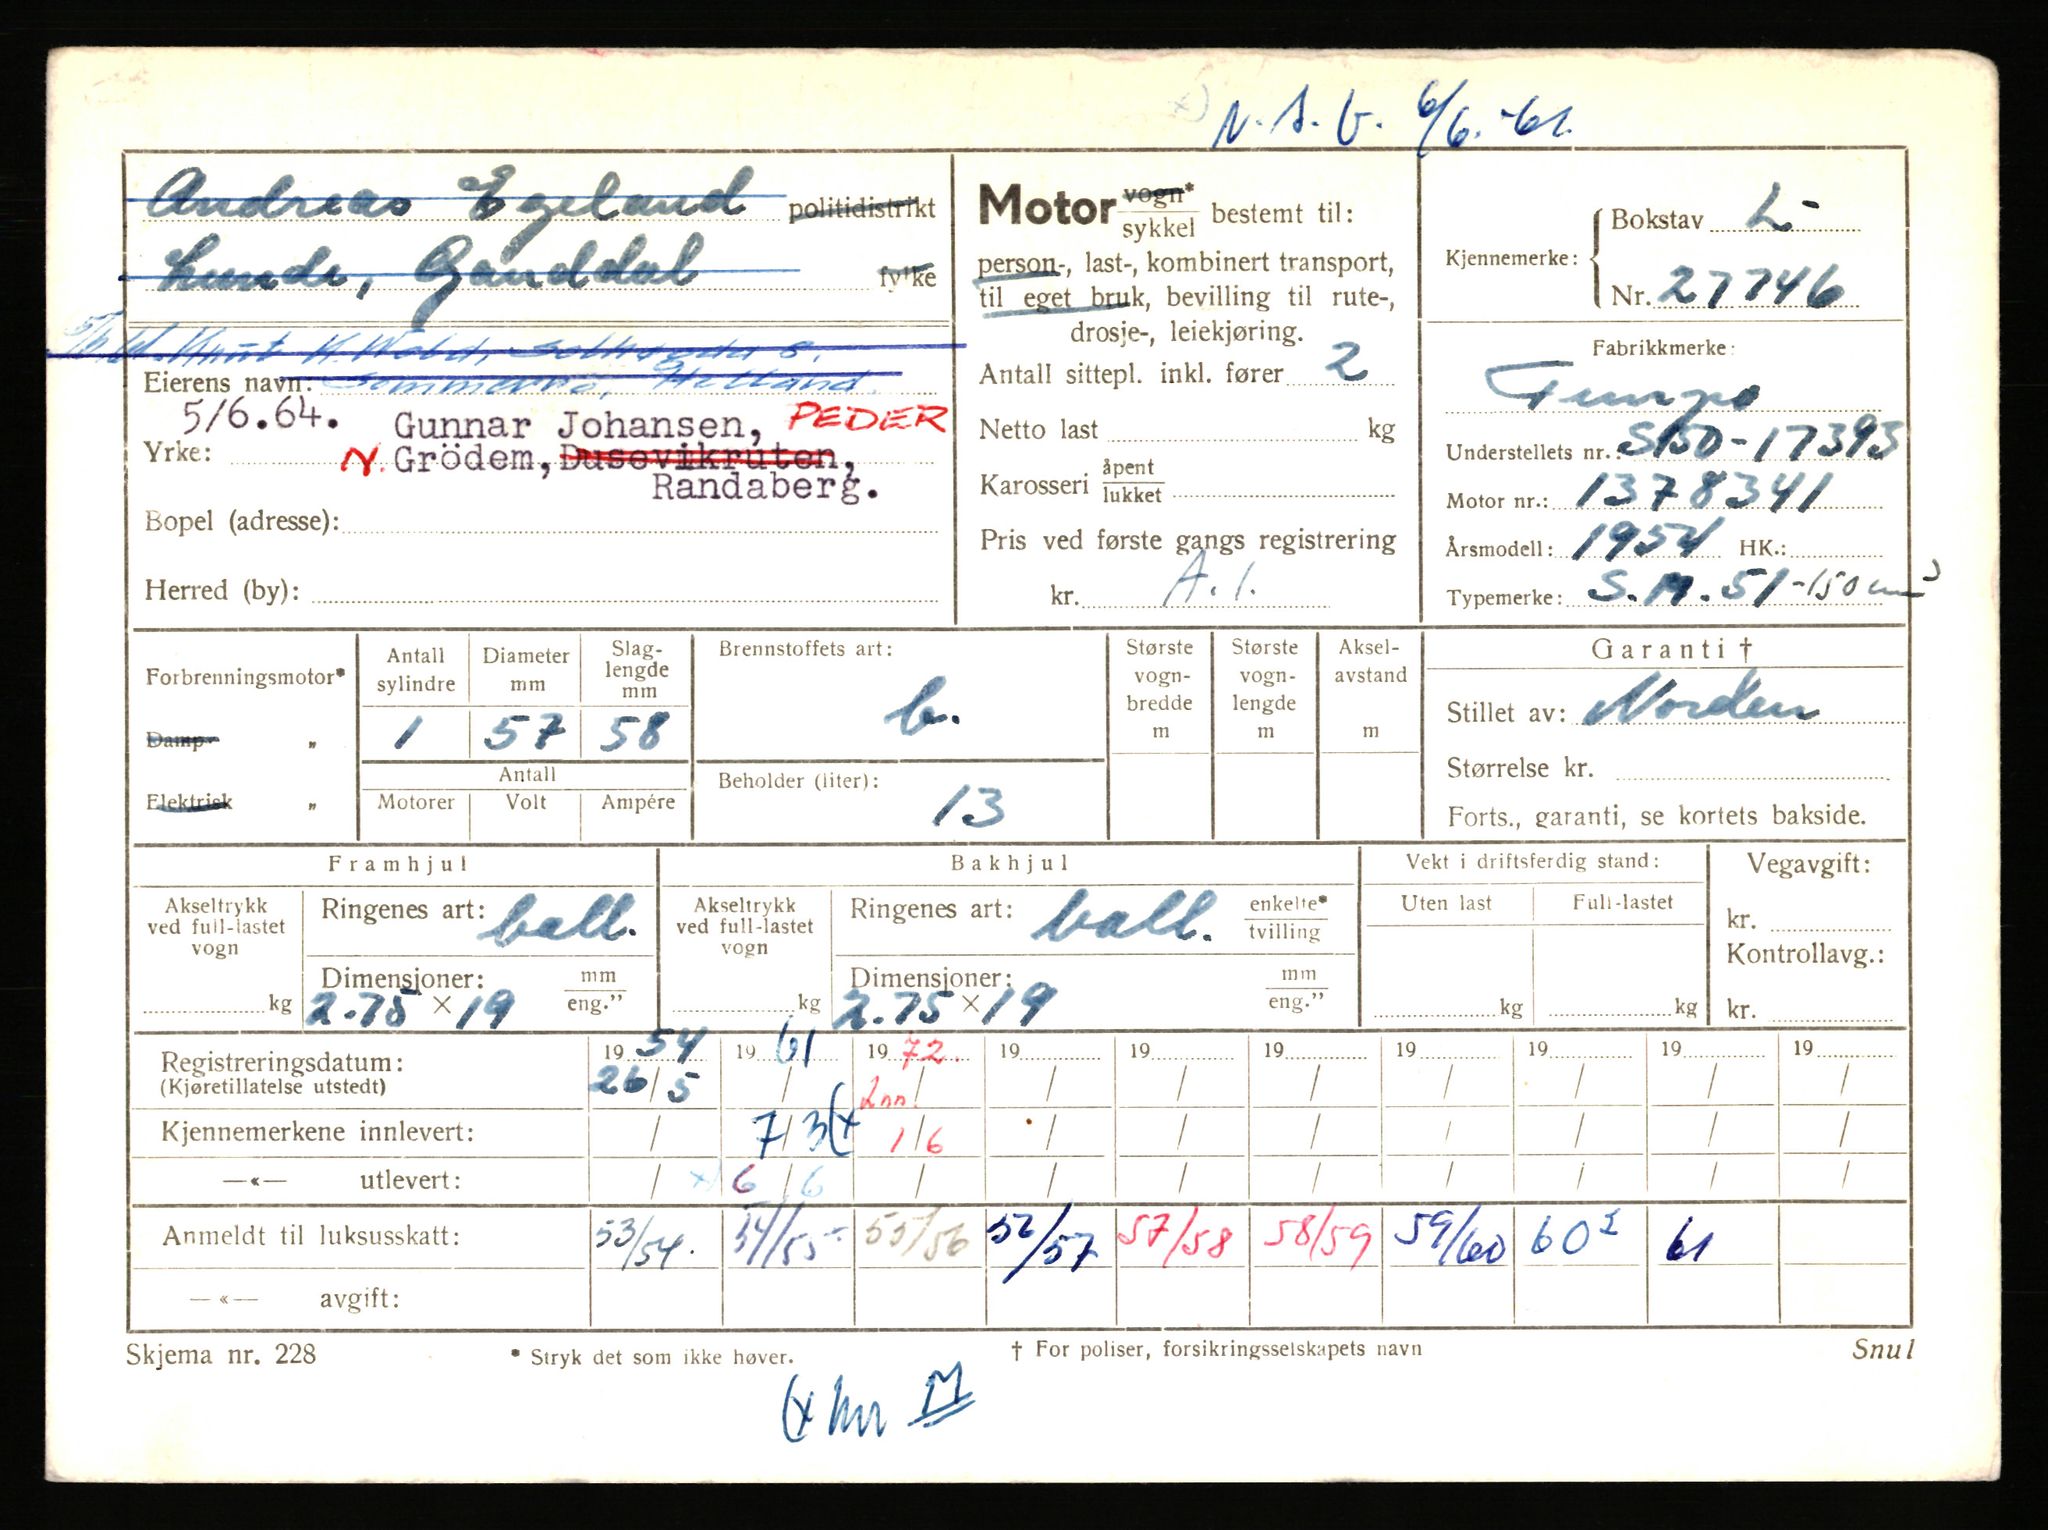 N. A. G. 6/6.-61.
Andreas Egeland politidistrikt
Lunde, Ganddal fylke
Knut K. Wold,
Eierens navn: Sommerro, Hetland.
5/6.64. Gunnar Johansen, PEDER
Yrke: N. Grödem, Dusevikruten,
Randaberg.
Bopel (adresse):
Herred (by):
Motor vogn* / sykkel bestemt til:
person-, last-, kombinert transport,
til eget bruk, bevilling til rute-,
drosje-, leiekjøring.
Antall sittepl. inkl. fører 2
Netto last kg
Karosseri åpent / lukket
Pris ved første gangs registrering
kr. A. 1.
Kjennemerke: Bokstav L-
Nr. 27746
Fabrikkmerke:
Tempo
Understellets nr.: S150-17393
Motor nr.: 1378341
Årsmodell: 1954 HK.:
Typemerke: S.M. 51-150 cm3
Forbrenningsmotor*
Damp- „
Elektrisk „
Antall sylindre Diameter mm Slaglengde mm
1 57 58
Antall
Motorer Volt Ampére
Brennstoffets art:
b.
Beholder (liter):
13
Største vognbredde m
Største vognlengde m
Akselavstand m
Garanti †
Stillet av: Norden
Størrelse kr.
Forts., garanti, se kortets bakside.
Framhjul
Akseltrykk ved full-lastet vogn
kg
Ringenes art: ball.
Dimensjoner: mm / eng."
2.75 × 19
Bakhjul
Akseltrykk ved full-lastet vogn
kg
Ringenes art: ball. enkelte* / tvilling
Dimensjoner: mm / eng."
2.75 × 19
Vekt i driftsferdig stand:
Uten last Full-lastet
kg kg
Vegavgift:
kr.
Kontrollavg.:
kr.
Registreringsdatum: 19 54 19 61 19 72. 19 19 19 19 19 19 19
(Kjøretillatelse utstedt) 26/5 / / / / / / / / /
Inn.
Kjennemerkene innlevert: / 7/3 (x 1/6 / / / / / / /
—«— utlevert: / x) 6/6 / / / / / / / /
Anmeldt til luksusskatt: 53/54. 54/55- 55/56 56/57 57/58 58/59 59/60 60 2 61
—«— avgift:
Skjema nr. 228 * Stryk det som ikke høver. † For poliser, forsikringsselskapets navn Snul